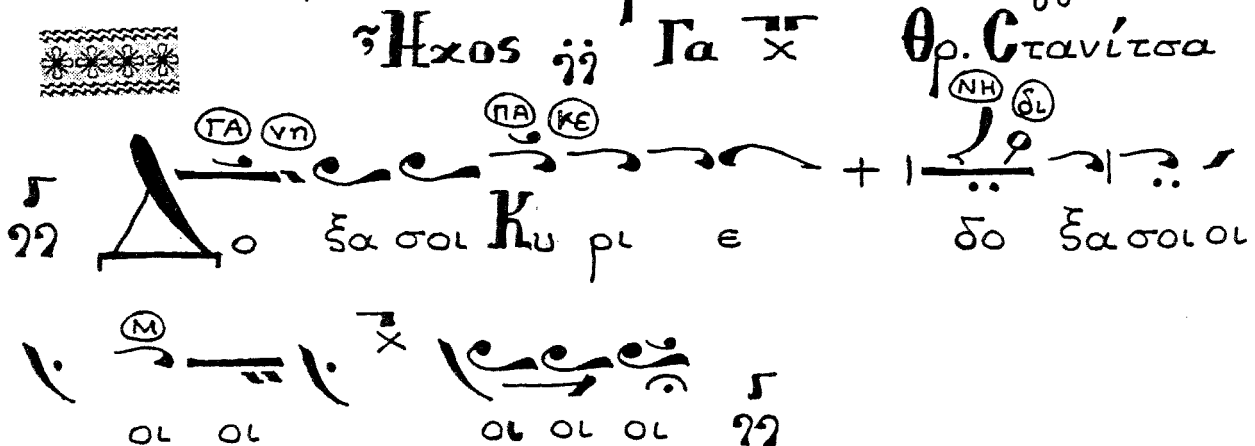 Ἦχος Γα χ Θρ. Στανίτσα
ΓΑ νη ΠΑ κε ΝΗ δι
Δ ο ξα σοι Κυ ρι ε + δο ξα σοι οι
Μ χ
οι οι οι οι οι